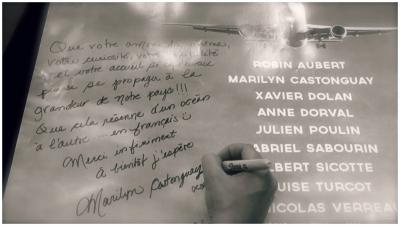 Que votre
votre curiosité, votre
et votre accueil
puisse se propager à la
grandeur de notre pays!!!
Que cela résonne d'un océan
à l'autre ... en français
Merci infiniment
à bientôt j'espère
Marilyn Castonguay
ROBIN AUBERT
MARILYN CASTONGUAY
XAVIER DOLAN
ANNE DORVAL
JULIEN POULIN
GABRIEL SABOURIN
LBERT SICOTTE
UISE TURCOT
NICOLAS VERREAU